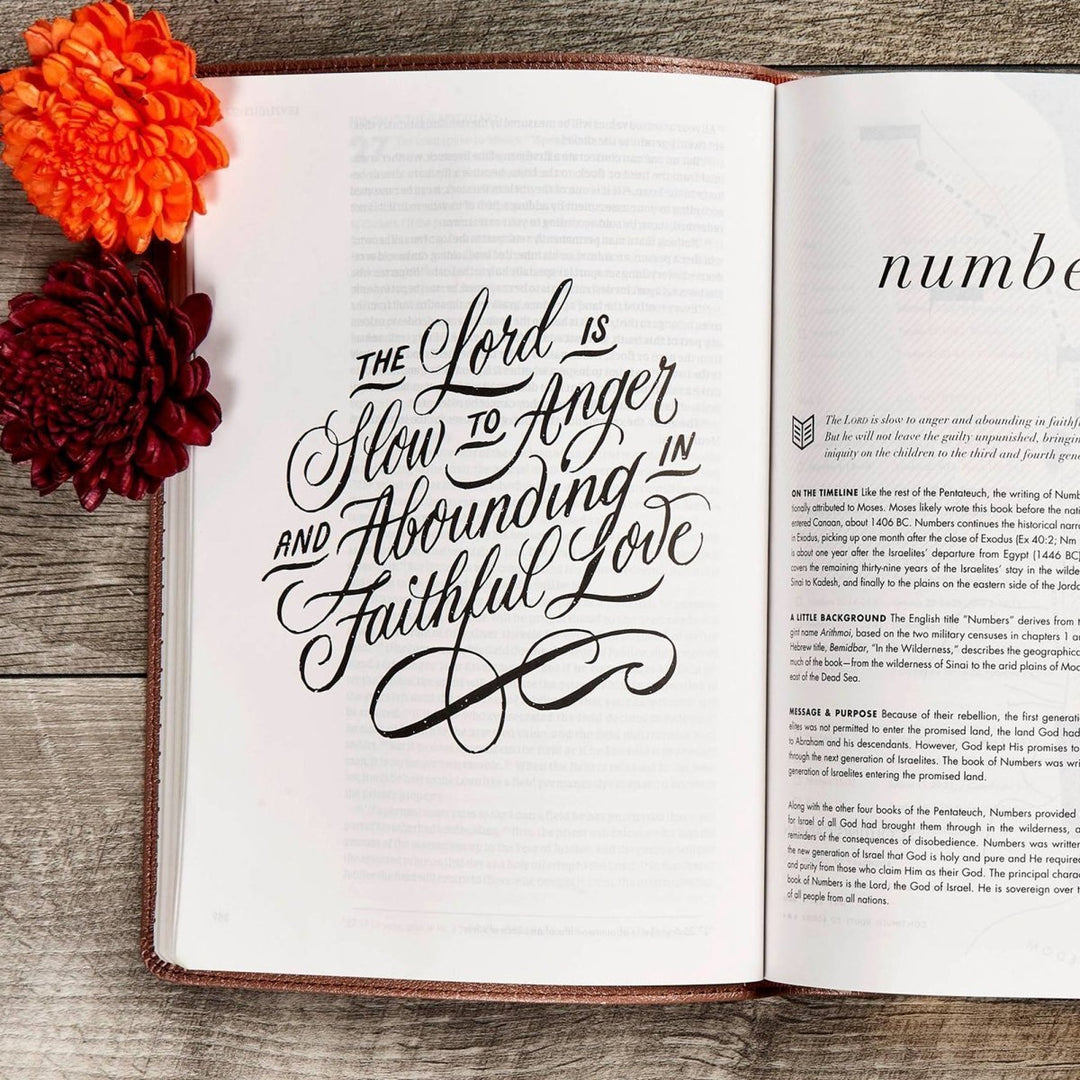 THE Lord IS
Slow TO Anger
AND Abounding IN
Faithful Love
numbe
The LORD is slow to anger and abounding in faithf
But he will not leave the guilty unpunished, bringin
iniquity on the children to the third and fourth gene
ON THE TIMELINE Like the rest of the Pentateuch, the writing of Numb
tionally attributed to Moses. Moses likely wrote this book before the nati
entered Canaan, about 1406 BC. Numbers continues the historical narra
in Exodus, picking up one month after the close of Exodus (Ex 40:2; Nm
is about one year after the Israelites' departure from Egypt (1446 BC)
covers the remaining thirty-nine years of the Israelites' stay in the wilde
Sinai to Kadesh, and finally to the plains on the eastern side of the Jorda
A LITTLE BACKGROUND The English title "Numbers" derives from
gint name Arithmoi, based on the two military censuses in chapters 1 a
Hebrew title, Bemidbar, "In the Wilderness," describes the geographica
much of the book—from the wilderness of Sinai to the arid plains of Moa
east of the Dead Sea.
MESSAGE & PURPOSE Because of their rebellion, the first generati
elites was not permitted to enter the promised land, the land God had
to Abraham and his descendants. However, God kept His promises to
through the next generation of Israelites. The book of Numbers was wri
generation of Israelites entering the promised land.
Along with the other four books of the Pentateuch, Numbers provided
for Israel of all God had brought them through in the wilderness, a
reminders of the consequences of disobedience. Numbers was written
the new generation of Israel that God is holy and pure and He require
and purity from those who claim Him as their God. The principal charac
book of Numbers is the Lord, the God of Israel. He is sovereign over t
of all people from all nations.